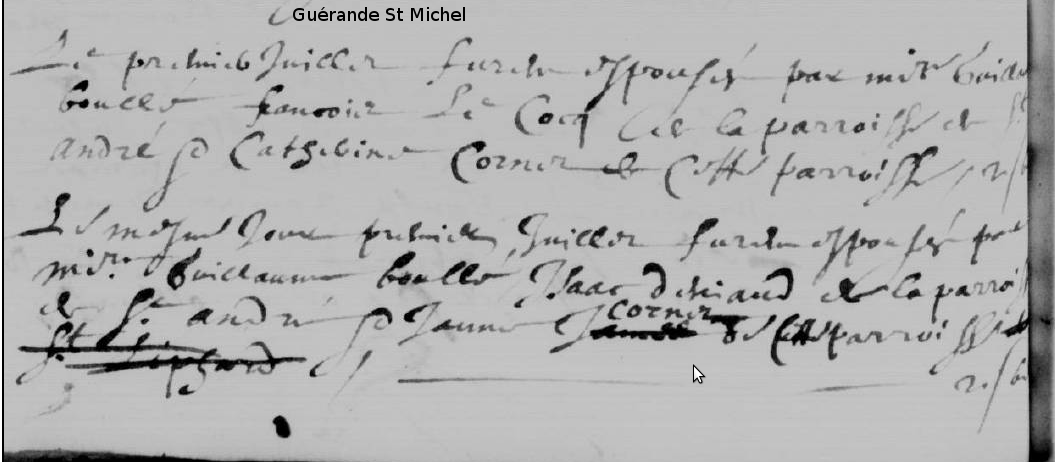 Guérande St Michel
Le premier Juillet furent espousés par mire Guill
boullé francois Le Cocq de la parroisse de St
andré et Catherine Corner de Cette parroisse
Le mesme Jour premier Juillet furent espousés par
mire Guillaume boullé Isaac deniaud de la parroisse
de St andré et Janne Corner de Cette parroisse
St Liphard